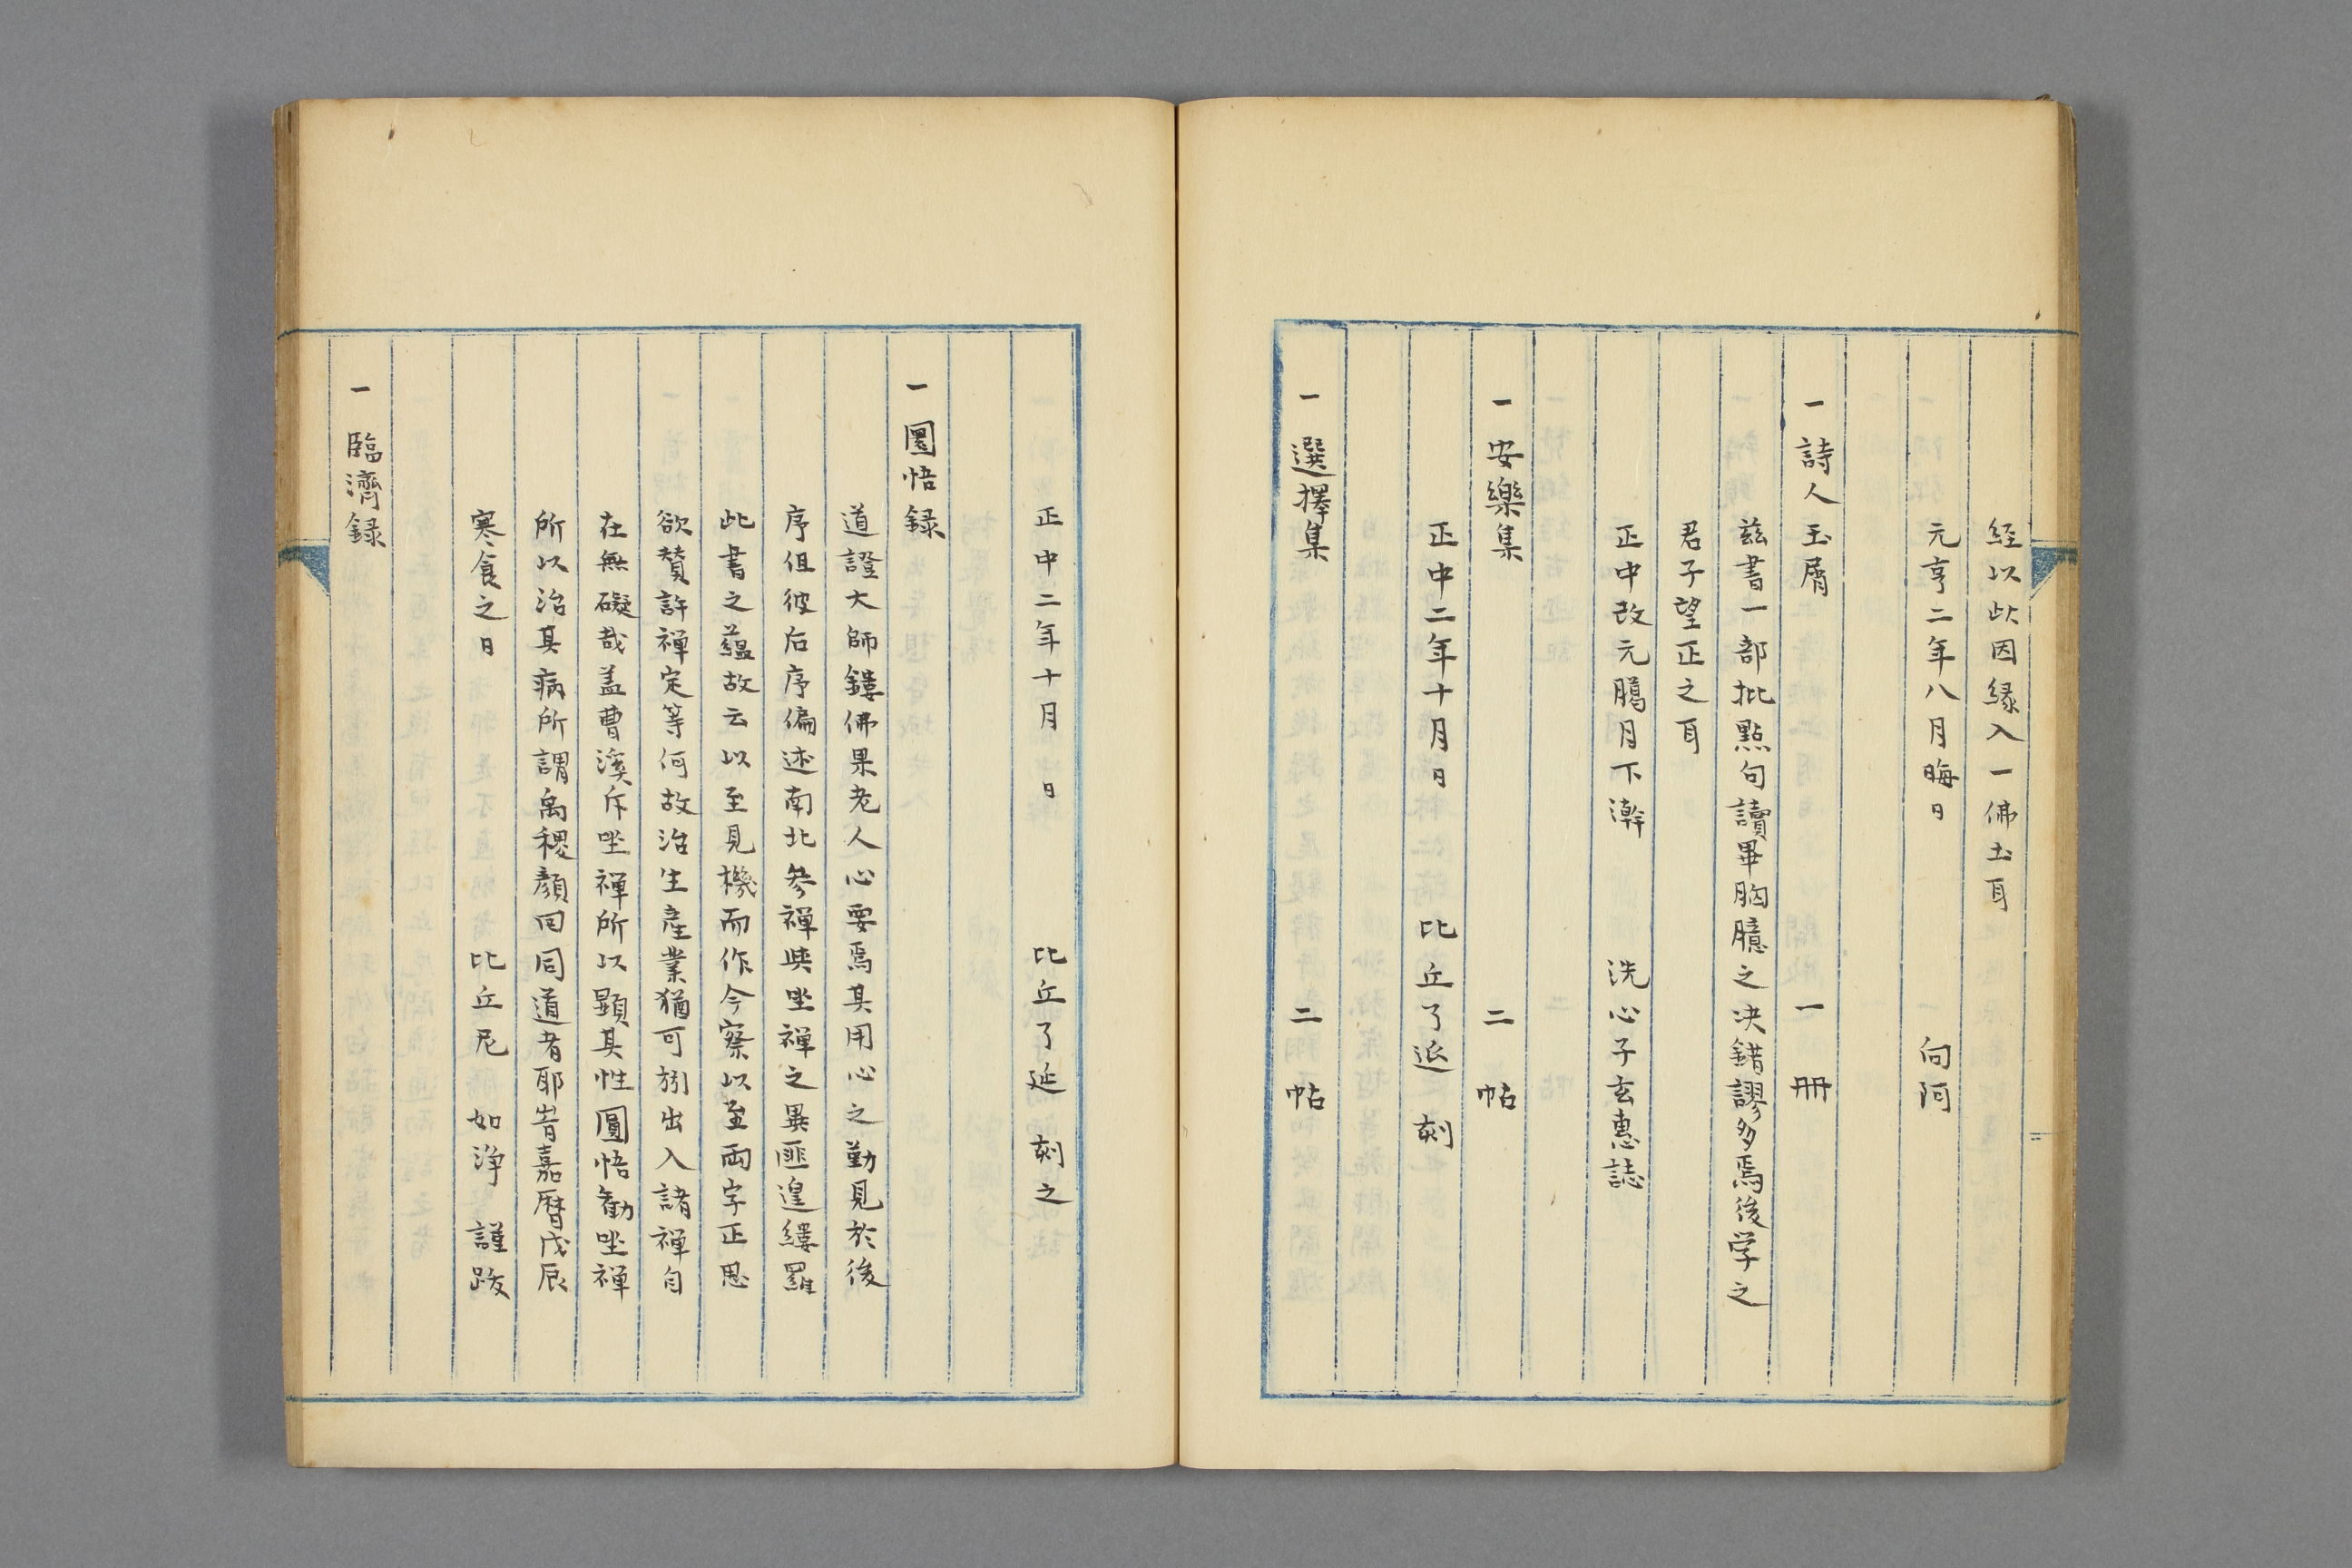 経以此因縁入一佛土耳
元亨二年八月晦日　向阿
一詩人玉屑　一冊
茲書一部批點句讀畢胸臆之决錯謬多焉後学之
君子望正之耳
正中改元臈月下澣　洗心子玄惠誌
一安樂集　二帖
正中二年十月日　比丘了延　刻
一選擇集　二帖
正中二年十月　日　比丘了延　刻之
一圜悟録
道證大師鏤佛果老人心要焉其用心之勤見於後
序但彼后序偏述南北参禅與坐禅之異匪遑縷羅
此書之蘊故云以至見機而作今察以至両字正思
欲賛許禅定等何故治生産業猶可刱出入諸禅自
在無礙哉盖曹溪斥坐禅所以顕其性圓悟勧坐禅
所以治其病所謂禹稷顔回同道者耶旹嘉暦戊辰
寒食之日　比丘尼　如浄　謹跋
一臨濟録